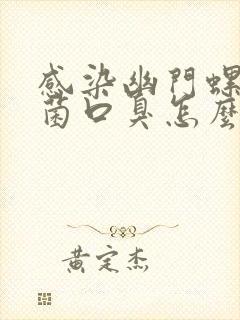 感染幽門螺
菌口臭怎麼
黃定杰